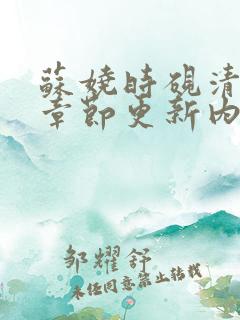 蘇嬈時硯清
章節更新內
邹耀舒
未经同意禁止转载